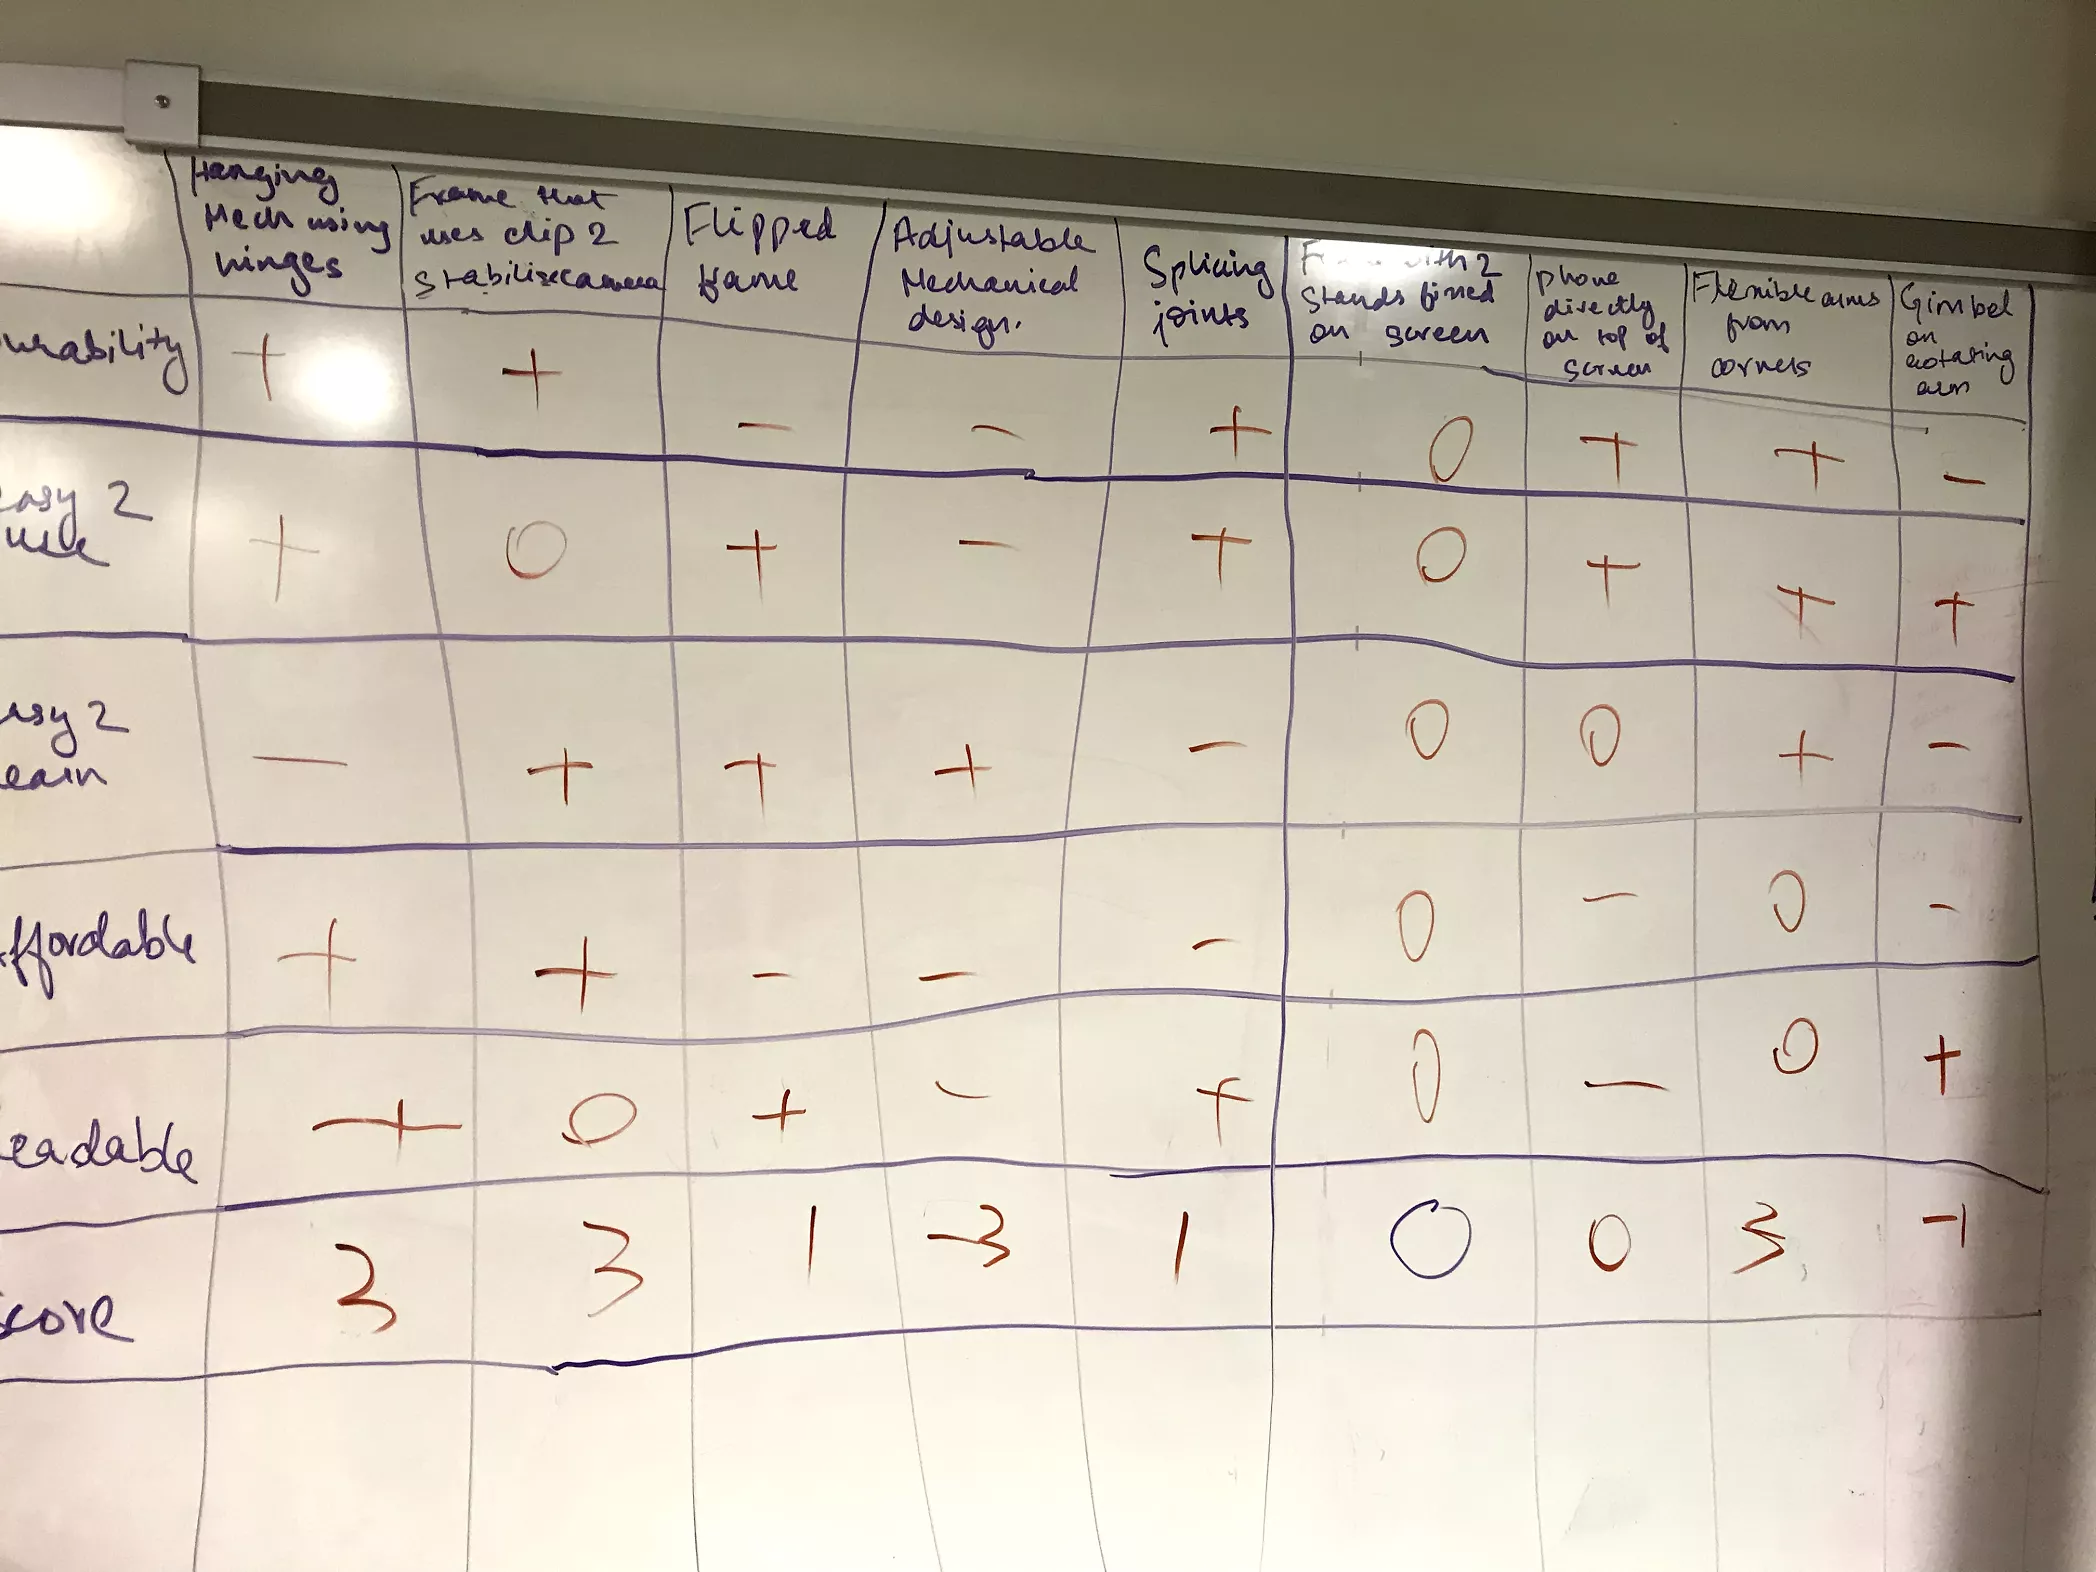 Hanging
Mech using
hinges
Frame that
uses clip 2
Stabilise camera
Flipped
frame
Adjustable
Mechanical
design.
Splicing
joints
with 2
Stands fixed
on screen
phone
directly
on top of
screen
Flexible arms
from
corners
Gimbel
on
rotating
arm
urability + + - - + 0 + + -
easy 2
use + 0 + - + 0 + + +
asy 2
earn - + + + - 0 0 + -
ffordable + + - - - 0 - 0 -
eadable + 0 + - + 0 - 0 +
core 3 3 1 -3 1 0 0 3 -1